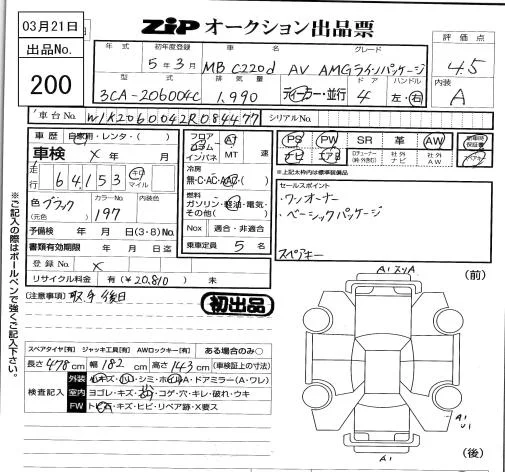 03月21日
ZIP オークション出品票
出品No.
200
年式 初年度登録 車名 グレード
5年3月 MB C220d AV AMGラインパッケージ
型式 排気量 ドア ハンドル
3CA-206004C 1,990 ディーラー・並行 4 左・右
評価点
4.5
内装
A
車台No. W1K2060042R084477 シリアルNo.
車歴 自家用・レンタ・( )
車検 × 年 月
走行 64,153 キロ マイル
色 ブラック カラーNo. 内装色
(元色) 197
予備検 年 月 日(3・8)No.
書類有効期限 年 月 日迄
登録No. ×
リサイクル料金 有(¥20,810) 未
フロア コラム インパネ AT MT 速
冷房
無・C・AC・AAC・( )
燃料
ガソリン・軽油・電気・その他( )
Nox 適合・非適合
乗車定員 5 名
PS PW SR 革 AW
ナビ エアB 社外ナビ 社外AW
新車時保証書
*上記太枠内は標準装備品
セールスポイント
・ワンオーナー
・ベーシックパッケージ
スペアキー
(注意事項) 取手後日
初出品
スペアタイヤ[有] ジャッキ工具[有] AWロックキー[有] ある場合のみ○
長さ 478 cm 幅 182 cm 高さ 143 cm (車検証上の寸法)
検査記入
外装
室内 ヨゴレ・キズ・コゲ・穴・キレ・破れ・ウキ
FW トビ石・キズ・ヒビ・リペア跡・X要ス
※ご記入の際はボールペンで強くご記入下さい。
(前)
A1
A1
U1
A1
(後)